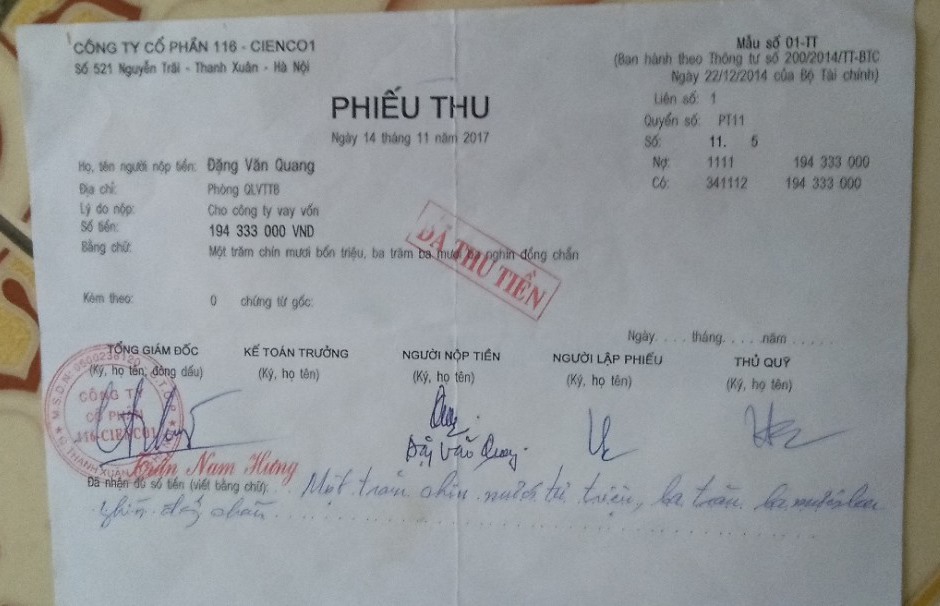 CÔNG TY CỔ PHẦN 116 - CIENCO1
Số 521 Nguyễn Trãi - Thanh Xuân - Hà Nội
Mẫu số 01-TT
(Ban hành theo Thông tư số 200/2014/TT-BTC
Ngày 22/12/2014 của Bộ Tài chính)
PHIẾU THU
Ngày 14 tháng 11 năm 2017
Liên số: 1
Quyển số: PT11
Số: 11. 5
Nợ: 1111 194 333 000
Có: 341112 194 333 000
Họ, tên người nộp tiền: Đặng Văn Quang
Địa chỉ: Phòng QLVTTB
Lý do nộp: Cho công ty vay vốn
Số tiền: 194 333 000 VND
Bằng chữ: Một trăm chín mươi bốn triệu, ba trăm ba mươi ba nghìn đồng chẵn
ĐÃ THU TIỀN
Kèm theo: 0 chứng từ gốc:
Ngày.....tháng.....năm.....
TỔNG GIÁM ĐỐC KẾ TOÁN TRƯỞNG NGƯỜI NỘP TIỀN NGƯỜI LẬP PHIẾU THỦ QUỸ
(Ký, họ tên, đóng dấu) (Ký, họ tên) (Ký, họ tên) (Ký, họ tên) (Ký, họ tên)
CÔNG TY
CỔ PHẦN
116-CIENCO1
Đặng Văn Quang
Trần Nam Hưng
Đã nhận đủ số tiền (viết bằng chữ): Một trăm chín mươi tư triệu, ba trăm ba mươi ba
nghìn đồng chẵn